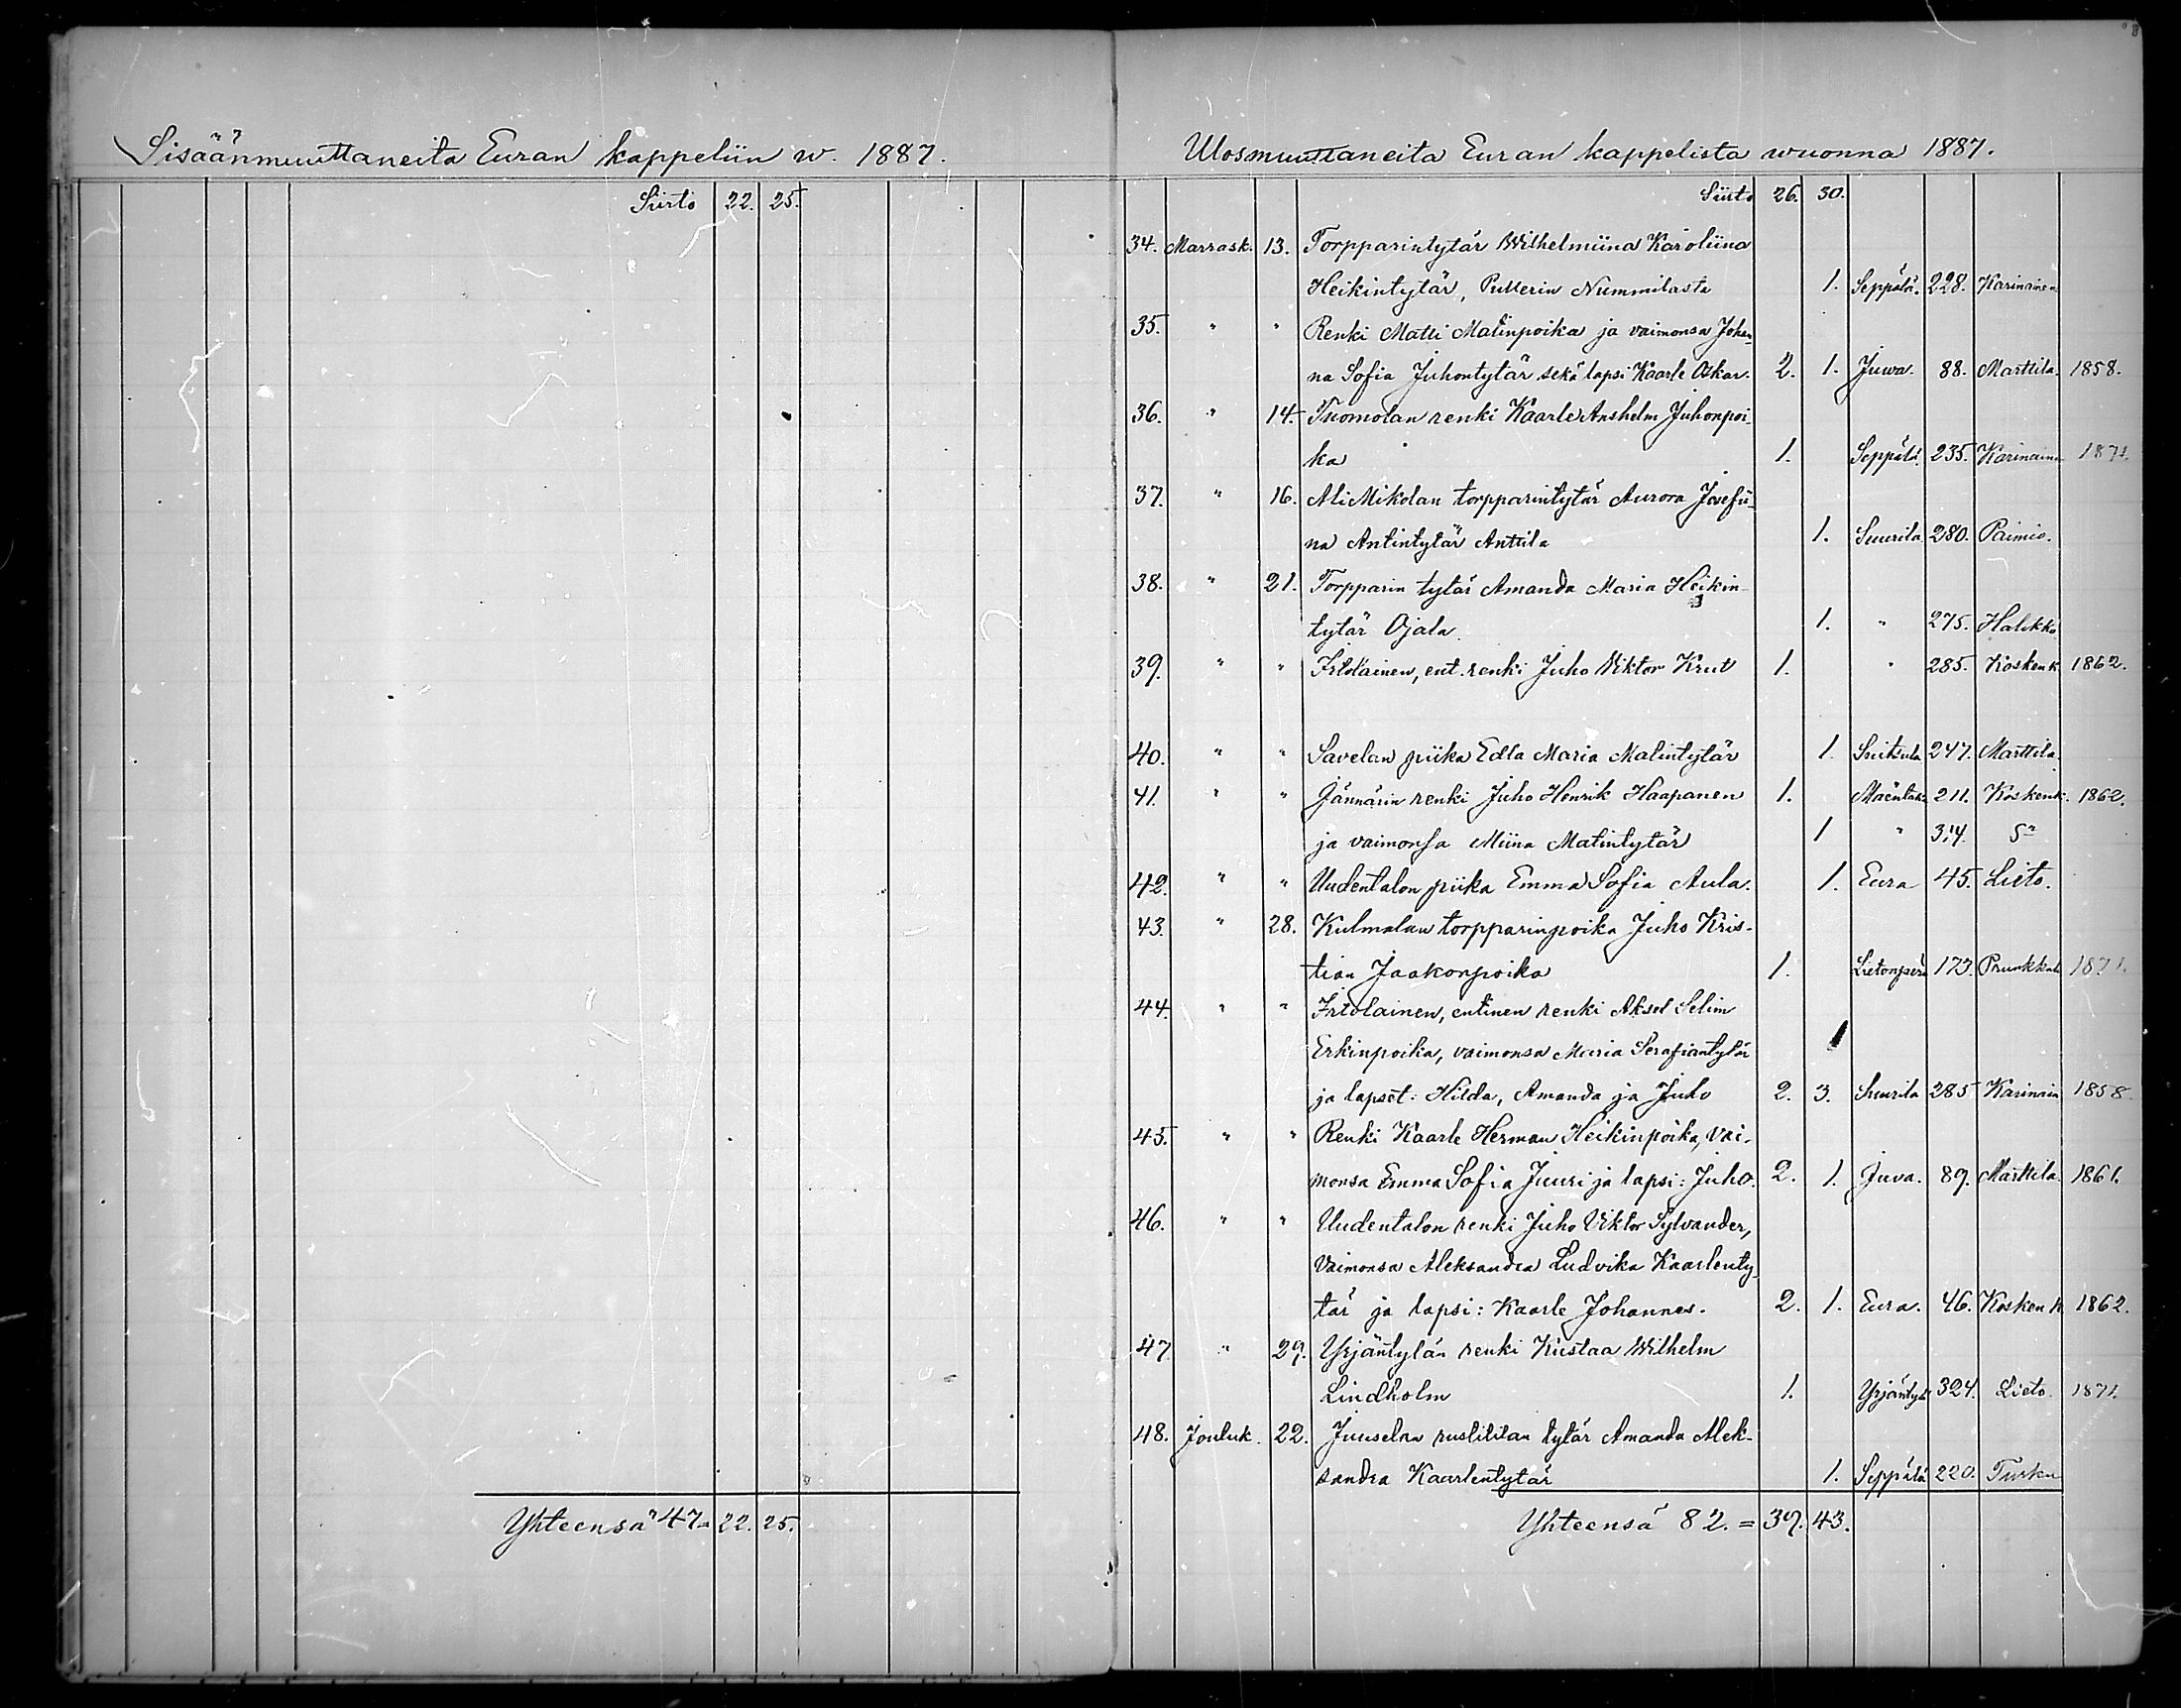 Sisäänmuuttaneita Euran kappeliin w. 1887.
Siirto 22. 25.
Yhteensä 47 = 22. 25.
Ulosmuuttaneita Euran kappelista wuonna 1887.
Siirto 26. 30.
34. Marrask. 13. Torpparintytär Wilhelmiina Karoliina
Heikintytär, Nummilasta 1. Seppälä. 228. Karinainen
35. " " Renki Matti Matinpoika ja vaimonsa Johan-
na Sofia Juhontytär sekä lapsi Kaarle Oskar. 2. 1. Juwa. 88. Marttila. 1858.
36. " 14. Tuomolan renki Kaarle Anshelm Juhonpoi-
ka 1. Seppälä. 235. Karinainen 1871.
37. " 16. Ali Mikolan torpparintytär Aurora Josefii-
na Antintytär Anttila 1. Suurila 280. Paimio.
38. " 21. Torpparin tytär Amanda Maria Heikin-
tytär Ojala. 1. " 275. Halikko
39. " " Itolainen, ent. renki Juho Viktor Krut 1. " 285. Kosken k. 1862.
40. " " Savelan piika Edla Maria Matintytär 1. 247. Marttila.
41. " " Jännärin renki Juho Henrik Haapanen 1. Mäentak. 211. Kosken k. 1862.
ja vaimonsa Miina Matintytär 1 " 314.
42. " " Uudentalon piika Emma Sofia Aula. 1. Eura 45. Lieto.
43. " 28. Kulmalan torpparinpoika Juho Kris-
tian Jaakonpoika 1. Lietonperä 173. Prunkkala 1871.
44. " " Irtolainen, entinen renki Aksel Selim
Erkinpoika, vaimonsa Maria Serafiantytär
ja lapset: Hilda, Amanda ja Juho 2. 3. Suurila 285 Karinain 1858.
45. " " Renki Kaarle Herman Heikinpoika, vai-
monsa Emma Sofia Juuri ja lapsi: Juho. 2. 1. Juva. 89. Marttila. 1861.
46. " " Uudentalon renki Juho Viktor Sylvander,
Vaimonsa Aleksandra Ludvika Kaarlenty-
tär ja lapsi: Kaarle Johannes. 2. 1. Eura. 46. Kosken k. 1862.
47. " 29. Yrjäntylän renki Kustaa Wilhelm
Lindholm 1. Yrjäntyl 324. Lieto. 1871.
48. Jouluk. 22. Juuselan rustitilan tytär Amanda Alek-
sandra Kaarlentytär 1. Seppälä 220. Turku
Yhteensä 82. = 39. 43.